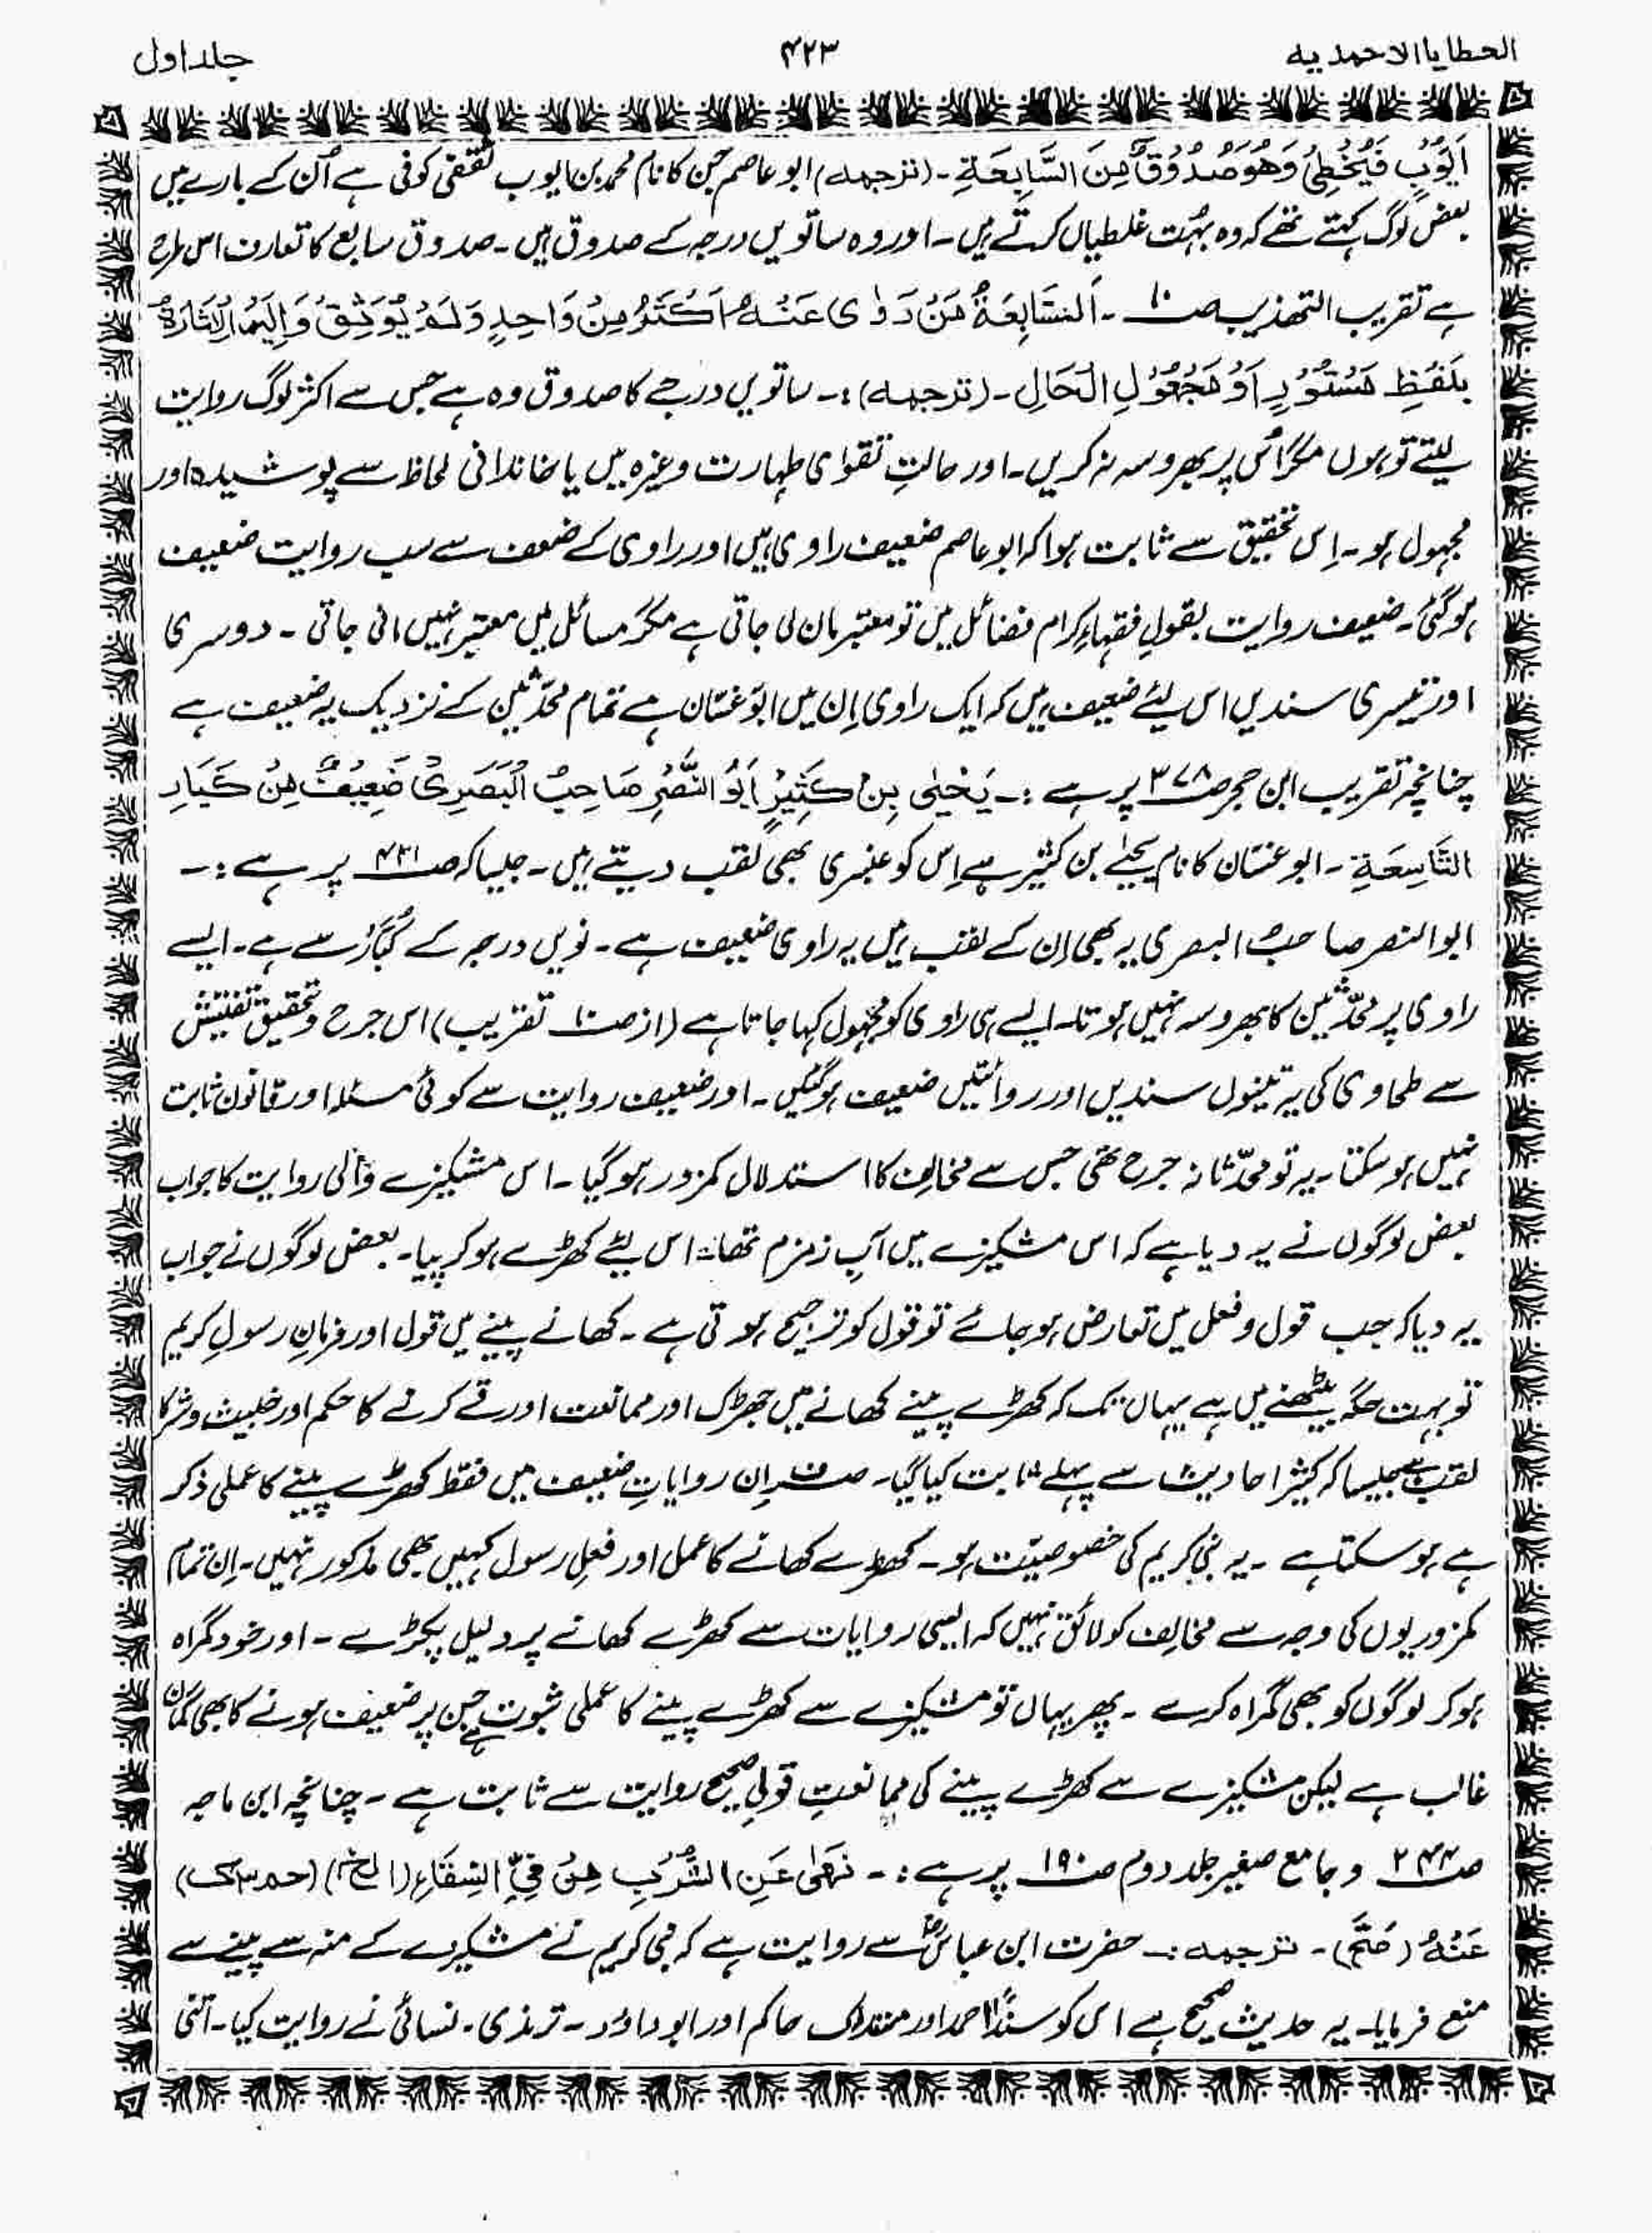 العطایا الاحمدیہ ۴۲۳ جلد اول
اَیُّوْبَ فَیُخْطِئُ وَھُوَ صَدُوْقٌ مِنَ السَّابِعَۃِ ۔ (ترجمہ) ابو عاصم جن کا نام محمد بن ایوب ثقفی کوفی ہے اُن کے بارے میں
بعض لوگ کہتے تھے کہ وہ بہُت غلطیاں کرتے ہیں ۔ اور وہ ساتویں درجہ کے صدوق ہیں ۔ صدوق سابع کا تعارف اس طرح
ہے تقریب التھذیب صـ۱۰ ۔ اَلسَّابِعَۃُ مَنْ رَوٰی عَنْہُ اَکْثَرُ مِنْ وَاحِدٍ وَلَمْ یُوَثِّقْ وَاِلَیْہِ الْاِشَارَۃُ
بِلَفْظِ مَسْتُوْرٍ اَوْ مَجْھُوْلِ الْحَالِ ۔ (ترجمہ) :۔ ساتویں درجے کا صدوق وہ ہے جس سے اکثر لوگ روایت
لیتے تو ہوں مگر اُس پر بھروسہ نہ کریں ۔ اور حالتِ تقوای طہارت وغیرہ میں یا خاندانی لحاظ سے پوشیدہ اور
مجہول ہو ۔ اِس تحقیق سے ثابت ہوا کہ ابو عاصم ضعیف راوی ہیں اور راوی کے ضعف سے سب روایت ضعیف
ہو گئی ۔ ضعیف روایت بقولِ فقہاءِ کرام فضائل میں تو معتبر مان لی جاتی ہے مگر مسائل میں معتبر نہیں مانی جاتی ۔ دوسری
اور تیسری سندیں اس لئے ضعیف ہیں کہ ایک راوی اِن میں ابو غسّان ہے تمام محدّثین کے نزدیک یہ ضعیف ہے
چنانچہ تقریب ابن حجر صـ۳۷۸ پر ہے :۔ یَحْیٰی بِنْ کَثِیْرٍ اَبُو النَّصْرِ صَاحِبُ الْبَصَرِیْ ضَعِیْفٌ مِنْ کَبَارِ
التَّاسِعَۃِ ۔ ابو غسّان کا نام یحیٰے بن کثیر ہے اِس کو عنبری بھی لقب دیتے ہیں ۔ جیسا کہ صـ۴۲۱ پر ہے :۔
ابوالنصر صاحبُ البصری یہ بھی اِن کے لقب ہیں یہ راوی ضعیف ہے ۔ نویں درجہ کے کُبَّارْ سے ہے ۔ ایسے
راوی پر محدّثین کا بھروسہ نہیں ہوتا ۔ ایسے ہی راوی کو مجہول کہا جاتا ہے (از صـ۱۰ تقریب) اس جرح و تحقیق تفتیش
سے طحاوی کی یہ تینوں سندیں اور روائتیں ضعیف ہو گئیں ۔ اور ضعیف روایت سے کوئی مسئلہ اور قانون ثابت
نہیں ہو سکتا ۔ یہ تو محدّثانہ جرح تھی جس سے مخالِف کا استدلال کمزور ہو گیا ۔ اس مشکیزے والی روایت کا جواب
بعض لوگوں نے یہ دیا ہے کہ اس مشکیزے میں آبِ زمزم تھا ۔ اس لئے کھڑے ہو کر پیا ۔ بعض لوگوں نے جواب
یہ دیا کہ جب قول و فعل میں تعارض ہو جائے تو قول کو ترجیح ہوتی ہے ۔ کھانے پینے میں قول اور فرمانِ رسولِ کریم
تو بہت جگہ بیٹھنے میں ہے یہاں تک کہ کھڑے پینے کھانے میں جھڑک اور ممانعت اور قے کرنے کا حکم اور خبیث و شر کا
لقب ہے جیسا کہ کثیر احادیث سے پہلے ثابت کیا گیا ۔ صرف اِن روایاتِ ضعیف میں فقط کھڑے پینے کا عملی ذکر
ہے ہو سکتا ہے ۔ یہ نبی کریم کی خصوصیّت ہو ۔ کھڑے کھانے کا عمل اور فعلِ رسول کہیں بھی مذکور نہیں ۔ اِن تمام
کمزوریوں کی وجہ سے مخالِف کو لائق نہیں کہ ایسی روایات سے کھڑے کھانے پر دلیل پکڑے ۔ اور خود گمراہ
ہو کر لوگوں کو بھی گمراہ کرے ۔ پھر یہاں تو مشکیزے سے کھڑے پینے کا عملی ثبوت ہے جن پر ضعیف ہونے کا بھی گمان
غالب ہے لیکن مشکیزے سے کھڑے پینے کی ممانعتِ قولی صحیح روایت سے ثابت ہے ۔ چنانچہ ابن ماجہ
صـ۲۴۴ و جامع صغیر جلد دوم صـ۱۹۰ پر ہے :۔ نَھٰی عَنِ الشُّرْبِ مِنْ فِیِّ السِّقَاءِ (الخ)
عَنْہُ (صَحَّ) ۔ ترجمہ :۔ حضرت ابن عباسؓ سے روایت ہے کہ نبی کریم نے مشکیزے کے منہ سے پینے سے
منع فرمایا ۔ یہ حدیث صحیح ہے اس کو سنداً احمد اور حاکم اور ابو داؤد ۔ ترمذی ۔ نسائی نے روایت کیا ۔ اتنی